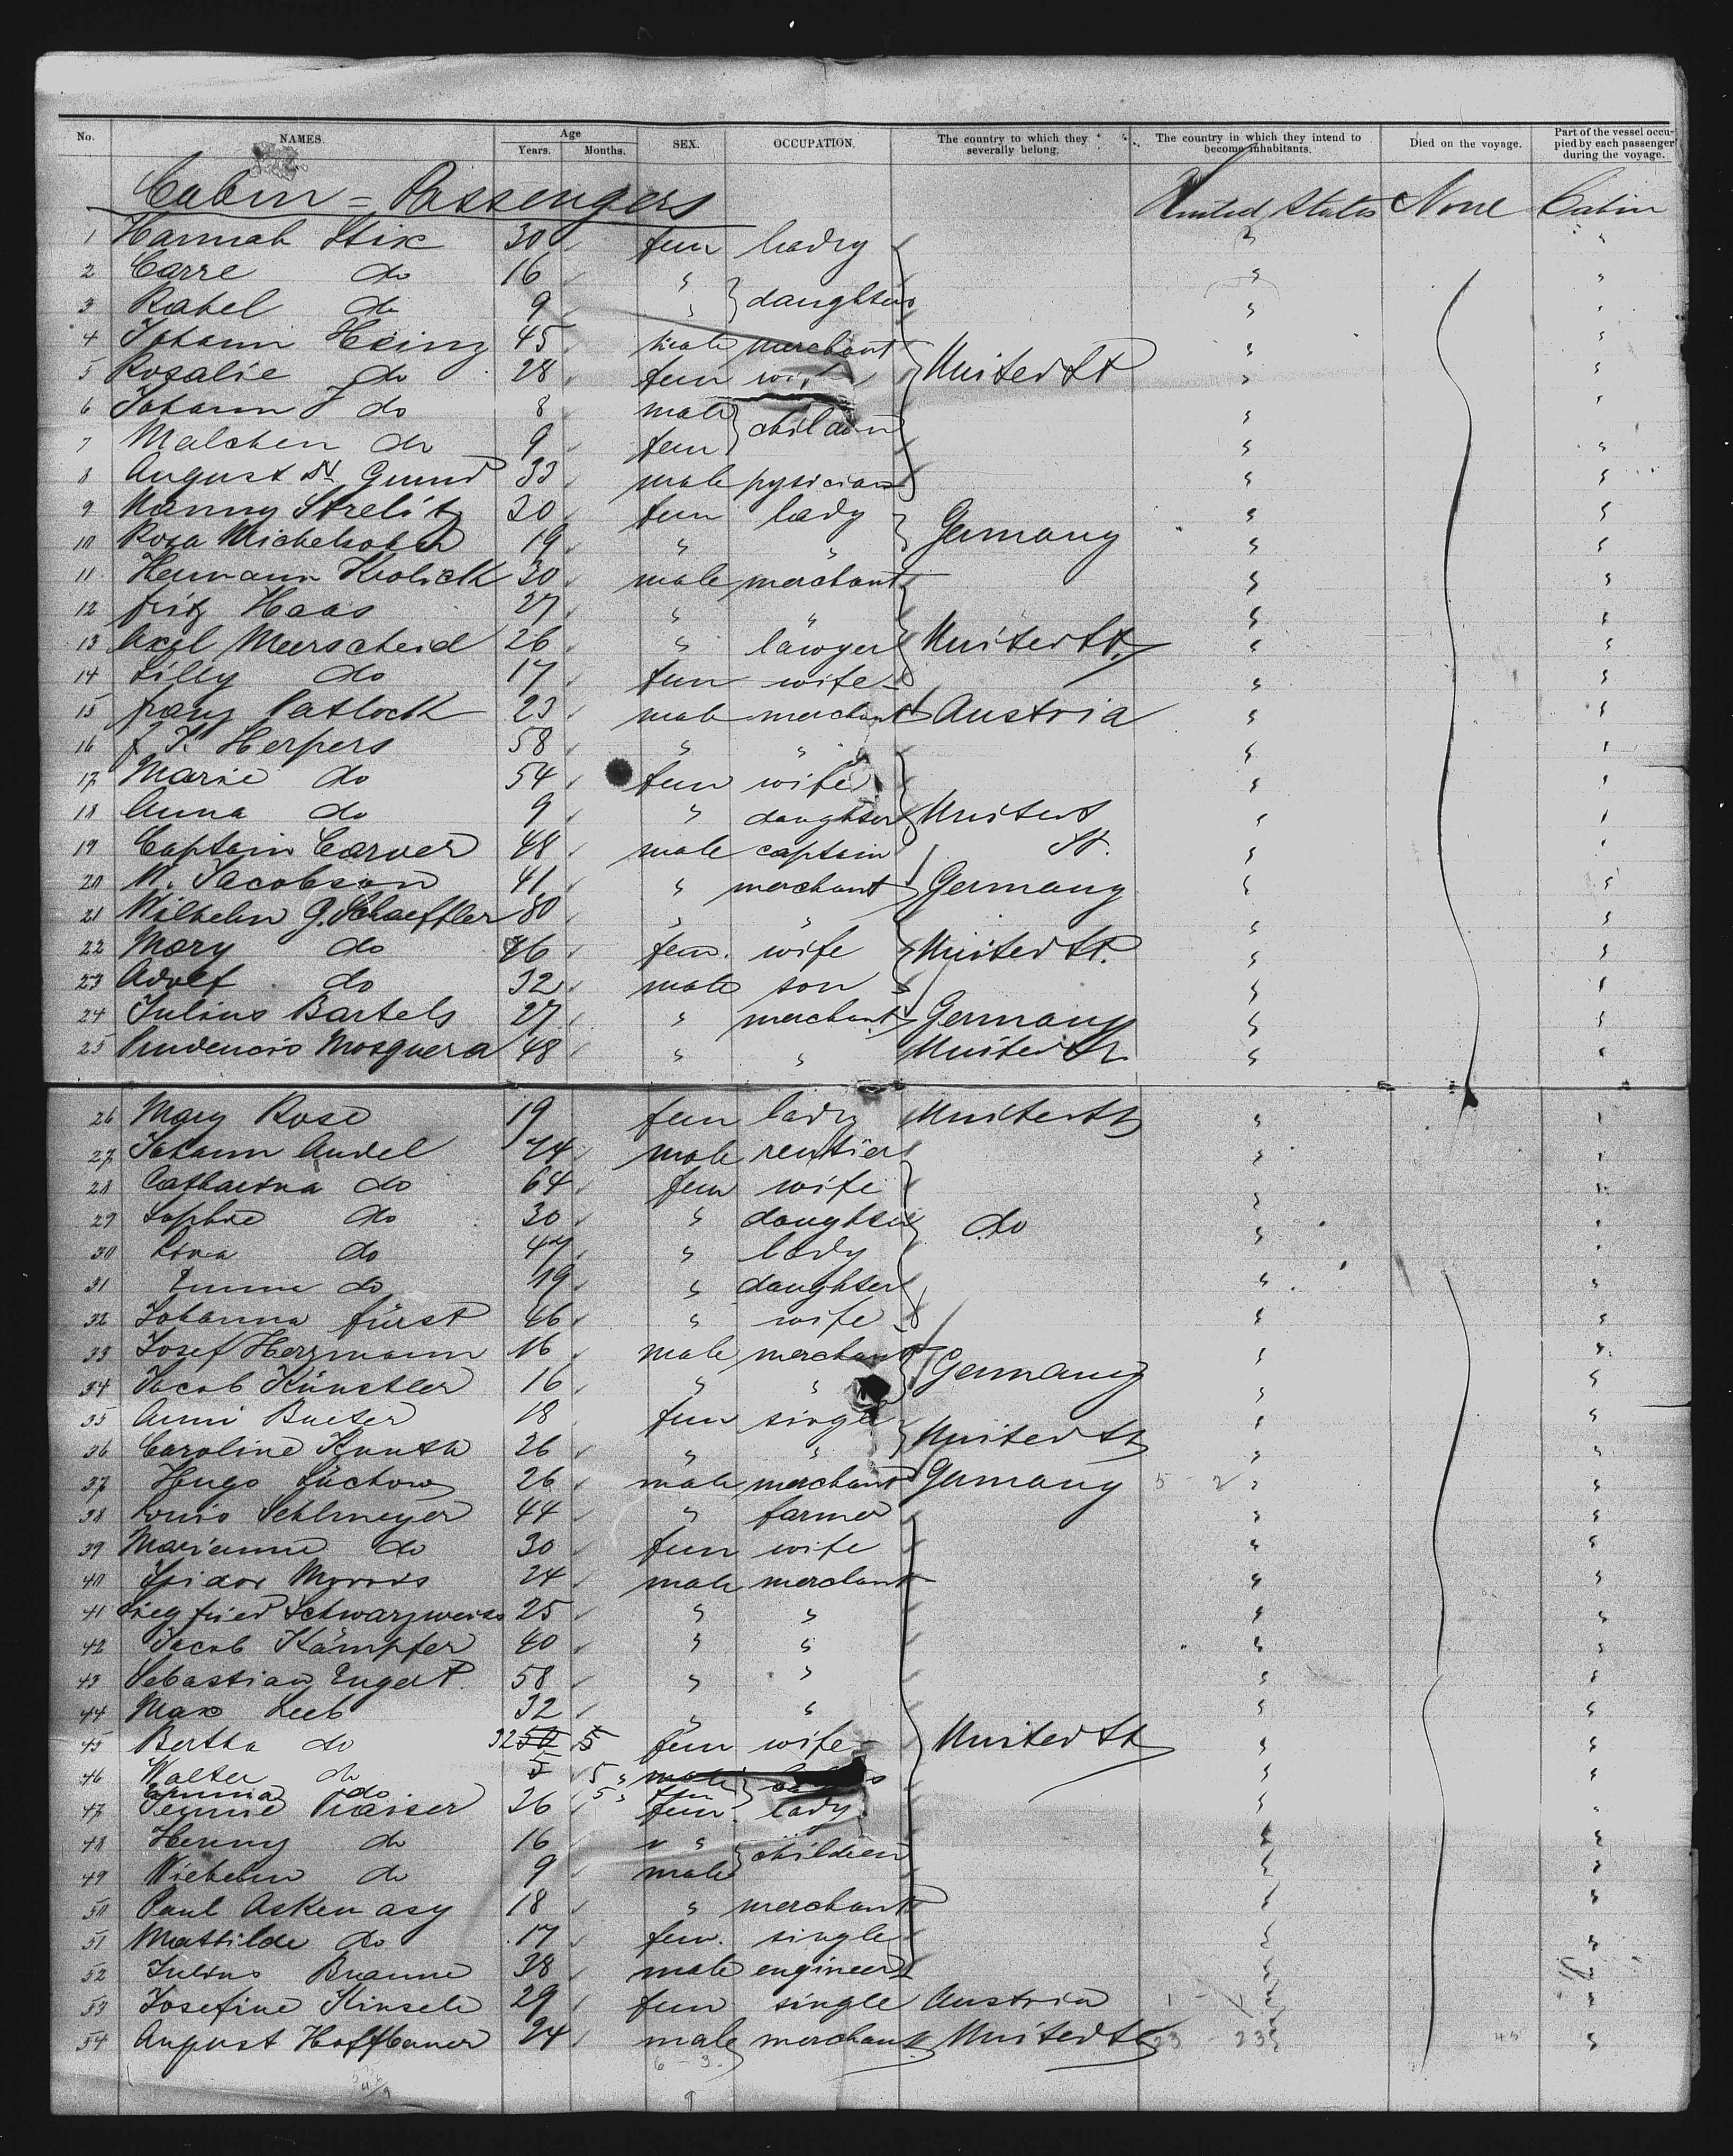 No. NAMES. Age Years. Months. SEX. OCCUPATION. The country to which they severally belong. The country in which they intend to become inhabitants. Died on the voyage. Part of the vessel occupied by each passenger during the voyage.
Cabin = Passengers United States None Cabin
1 Hannah Stix 30 fem lady "
2 Carre do 16 " "
3 Rahel do 9 " daughters "
4 Johann Heinz 45 male merchant "
5 Rosalie do 28 fem United St "
6 Johann J do 8 male "
7 Malchen do 9 fem children "
8 August Dr. Gumd 33 male pysician "
9 Nanny Strelitz 30 fem lady "
10 Rosa 19 " " Germany "
11 Hermann Krolick 30 male merchant "
12 fritz Haas 27 " " "
13 Axel Meerscheid 26 " lawyer United St. "
14 Lilly do 17 fem wife "
15 franz Patlock 23 male merchant Austria "
16 J. Herpers 58 " " "
17 Marie do 54 fem wife "
18 Anna do 9 " daughter United St. "
19 Captain Carver 48 male captain "
20 Jacobson 41 " merchant Germany "
21 Wilhelm G. Schaeffler 80 " " "
22 Mary do fem. wife United St. "
23 Adolf do 32 male son "
24 Julius Bartels 27 " merchant Germany "
25 Prudencio Mosquera 48 " " United St "
26 Mary Rose 19 fem lady United St "
27 Johann Andel 74 male rentier "
28 Catharina do 64 fem wife "
29 Sophie do 30 " daughter do "
30 do 47 " lady "
31 Emma do 19 " daughter "
32 Johanna fürst 46 " wife "
33 Josef Herzmann 16 male merchant "
34 Jacob Künstler 16 " " Germany "
35 18 fem single "
36 Caroline 26 " " United St "
37 Hugo Lüchow 26 male merchant Germany "
38 Louis Sehlmeyer 44 " farmer "
39 Marianne do 30 fem wife "
40 Isidor Morris 24 male merchant "
41 Siegfried Schwarzweiss 25 " " "
42 Jacob Kämpfer 40 " " "
43 Sebastian Engert 58 " " "
44 Max Leeb 32 " " "
45 Bertha do 32 fem wife United St "
46 Walter do 5 male "
Emma do 5 fem
47 Jennie Kaiser 26 fem. lady "
48 Henny do 16 " "
49 Wilhelm do 9 male children "
50 Paul Askenasy 18 " merchant "
51 Mathilde do 17 fem. single "
52 Julius Braune 38 male engineer "
53 Josefine Kinsele 29 fem single Austria "
54 August Hoffbauer 24 male merchant United St 23 23 "
6 - 3
9